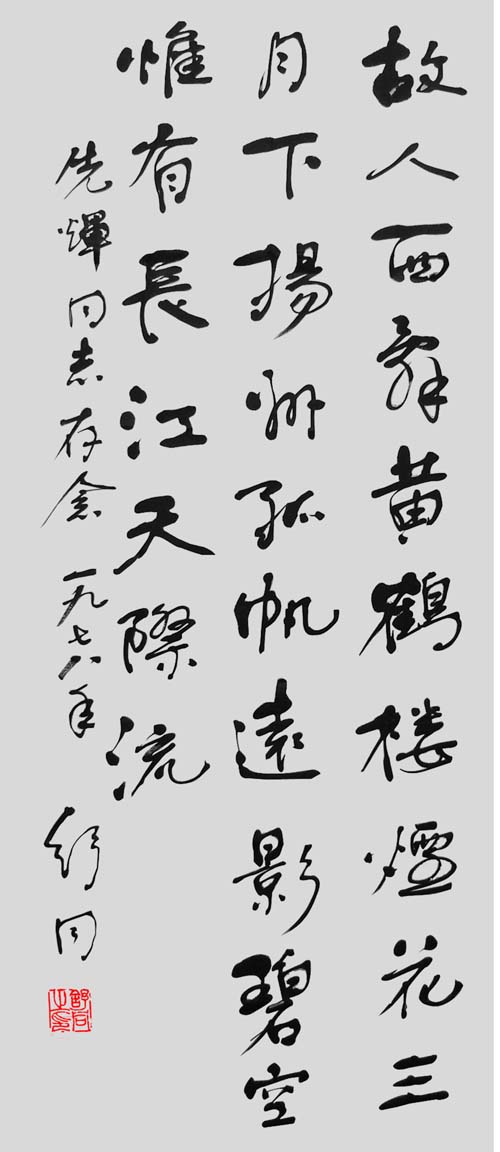 故人西辞黄鹤楼煙花三
月下揚州孤帆遠影碧空
惟有長江天際流
先煇同志存念 一九七八年
舒同
舒同之印